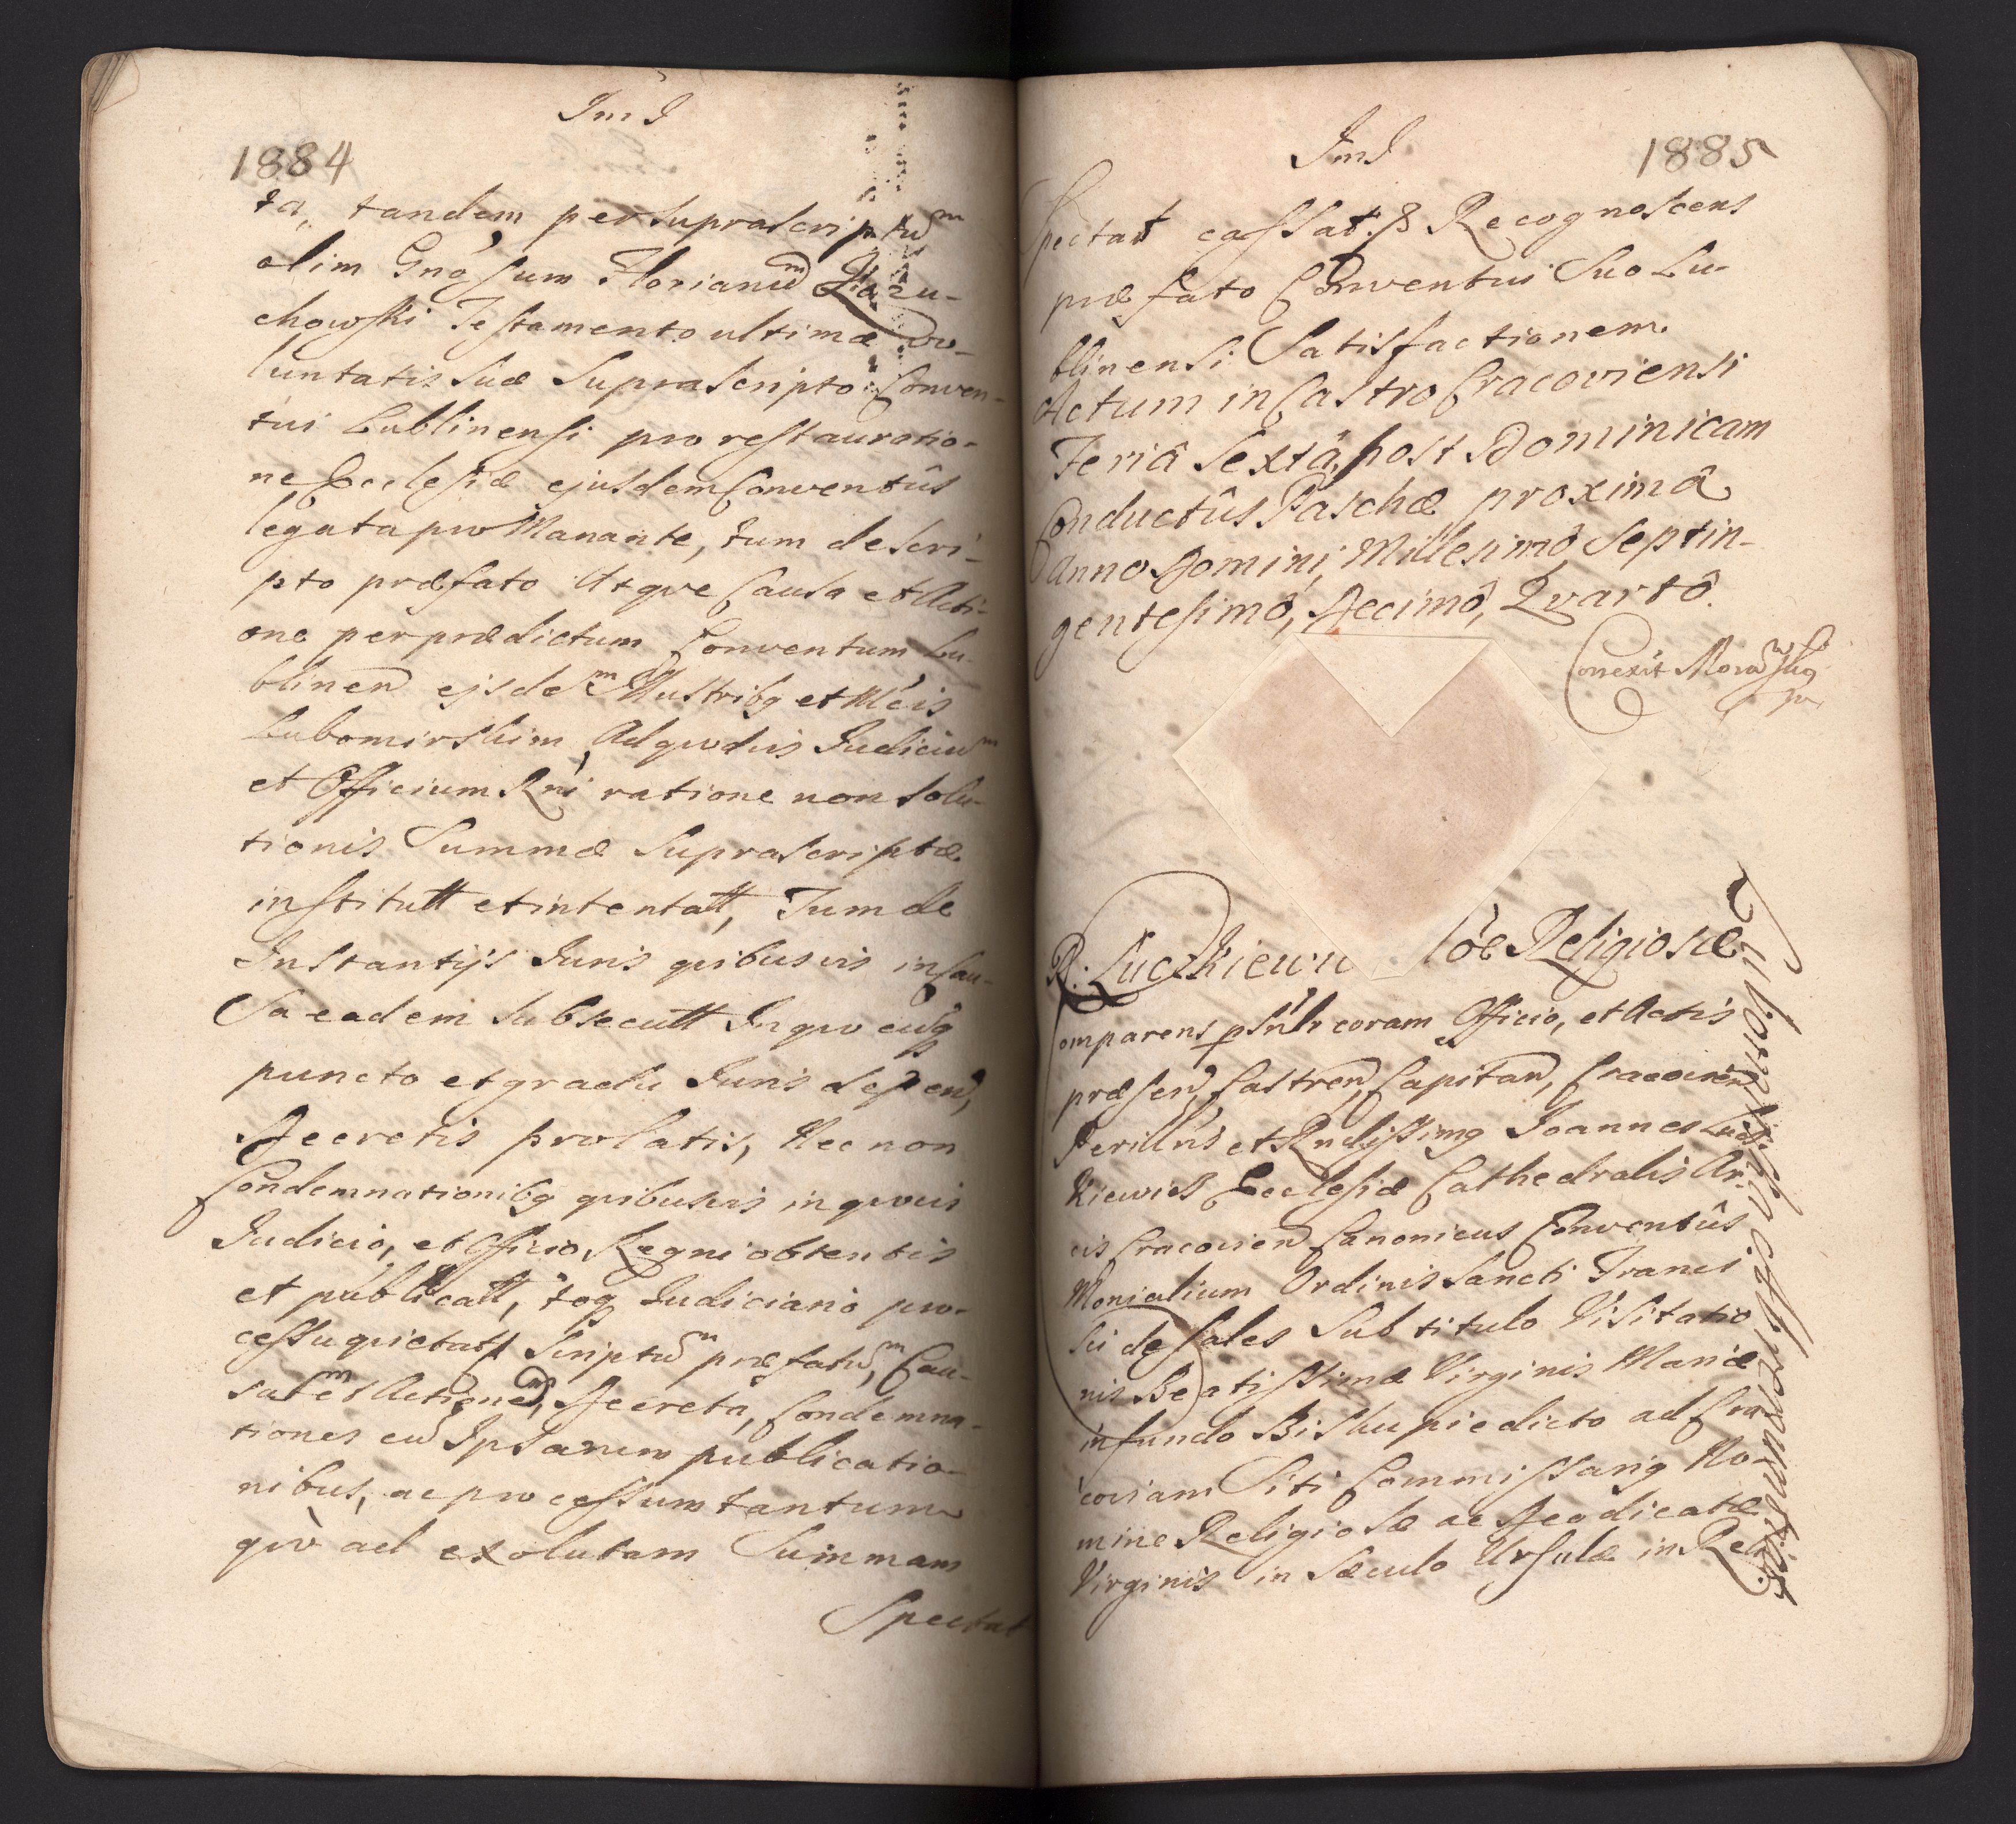 1884
ta, tandem per supraScriptũm
olim Gnosum Florianũm
chowski Testamento ultimæ vo-
luntatis suæ SupraScripto Conven-
tui Lublinensi pro restauratio-
ne Ecclesiæ ejusdem Conventûs
legata pro Manante, tum de Scri-
pto præfato Atqve Causa et Acti-
one per prædictum Conventum Lu-
blinen
Lubomirskim, Ad qvodvis Judiciũm
et Officium Rni ratione non Solu-
tionis Summæ SupraScriptæ
institutt et intentatt, Tum de
Instantijs Juris qvibusvis in Cau-
Sa eadem Subsecutt In qvocuq
puncto et gradu Juris depen,
Decretis prolatis, Nec non
Condemnationibq qvibusvis in qvovis
Judicio, et Officio Regni obtentis
et publicatt, toq Judiciario pro-
cessu qvietatt Scriptũm præfatũm, Cau-
sam et Actionem, Decreta, Condemna-
tiones cũ Ipsarum publicatio-
nibus, ac processum tantum
qvò ad exolutam Summam
Spectat
1885
Spectat cassat. Recognoscens
præfato Conventui Suo Lu-
blinensi Satisfactionem.
Actum in Castro Cracoviensi
Feriâ Sextâ, post Dominicam
Conductûs Paschæ proximâ
Anno Domini, Millesimô, Septin-
gentesimô, Decimô, Qvartô.
R. Luczkiewic Religiosæ
Comparens coram Officio, et Actis
præsen, Castren, Capitan, Cracovien,
Perillris et Rndissimq Joannes Lucz-
kiewicz Ecclesiæ Cathedralis Ar-
cis Cracovien Canonicus Conventûs
Monialium Ordinis Sancti Franci-
Sci de Sales Sub titulo Visitatio
nis Beatissimæ Virginis Mariæ
in fundo Biskupie dicto ad Cra-
coviam Siti Commissariq No-
mine Religiosæ ac Deo dicatæ
Virginis in Sæculo Ursulæ in Reli-